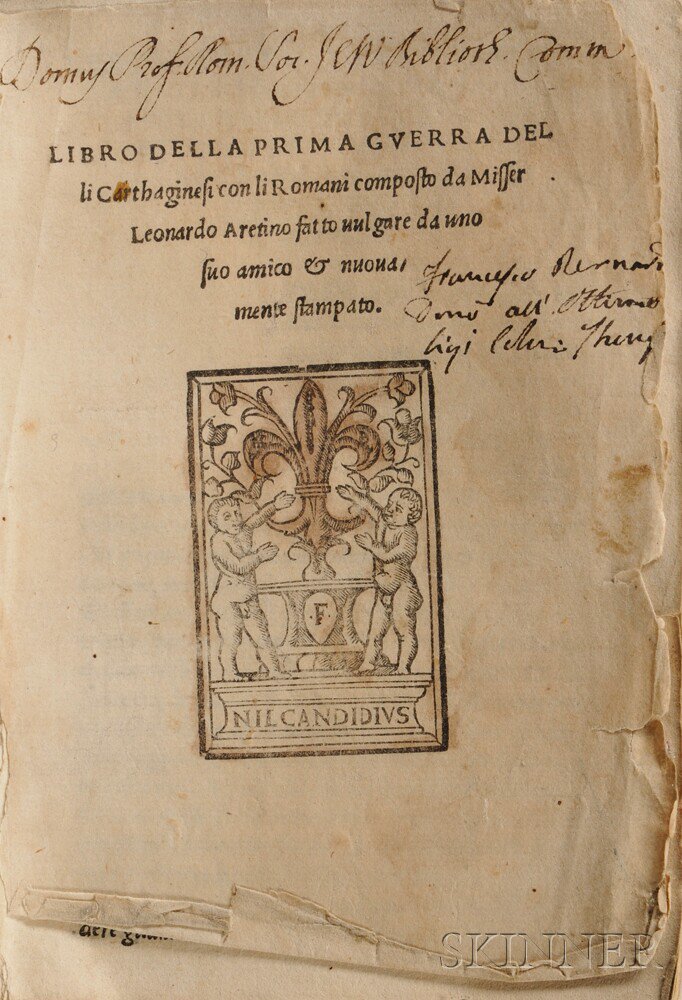 Domus Prof. Rom. Soc. JESV Biblioth. Comm
LIBRO DELLA PRIMA GVERRA DEL
li Carthaginesi con li Romani composto da Misser
Leonardo Aretino fatto uulgare da uno
suo amico & nuoua,
mente stampato.
Francesco Bernar
Donò all'
F
NILCANDIDIVS
SKINNER